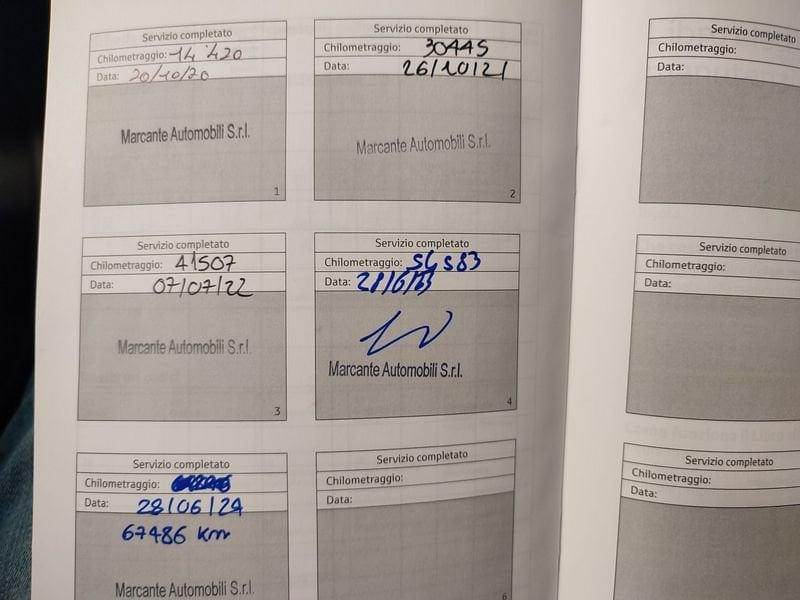 Servizio completato
Chilometraggio: 14'420
Data: 20/10/20
Marcante Automobili S.r.l.
1
Servizio completato
Chilometraggio: 30445
Data: 26/10/21
Marcante Automobili S.r.l.
2
Servizio completato
Chilometraggio:
Data:
Servizio completato
Chilometraggio: 41507
Data: 07/07/22
Marcante Automobili S.r.l.
3
Servizio completato
Chilometraggio:
Data: 28/6/23
Marcante Automobili S.r.l.
4
Servizio completato
Chilometraggio:
Data:
Servizio completato
Chilometraggio:
Data: 28/06/24
67486 Km
Marcante Automobili S.r.l.
Servizio completato
Chilometraggio:
Data:
6
Servizio completato
Chilometraggio:
Data: